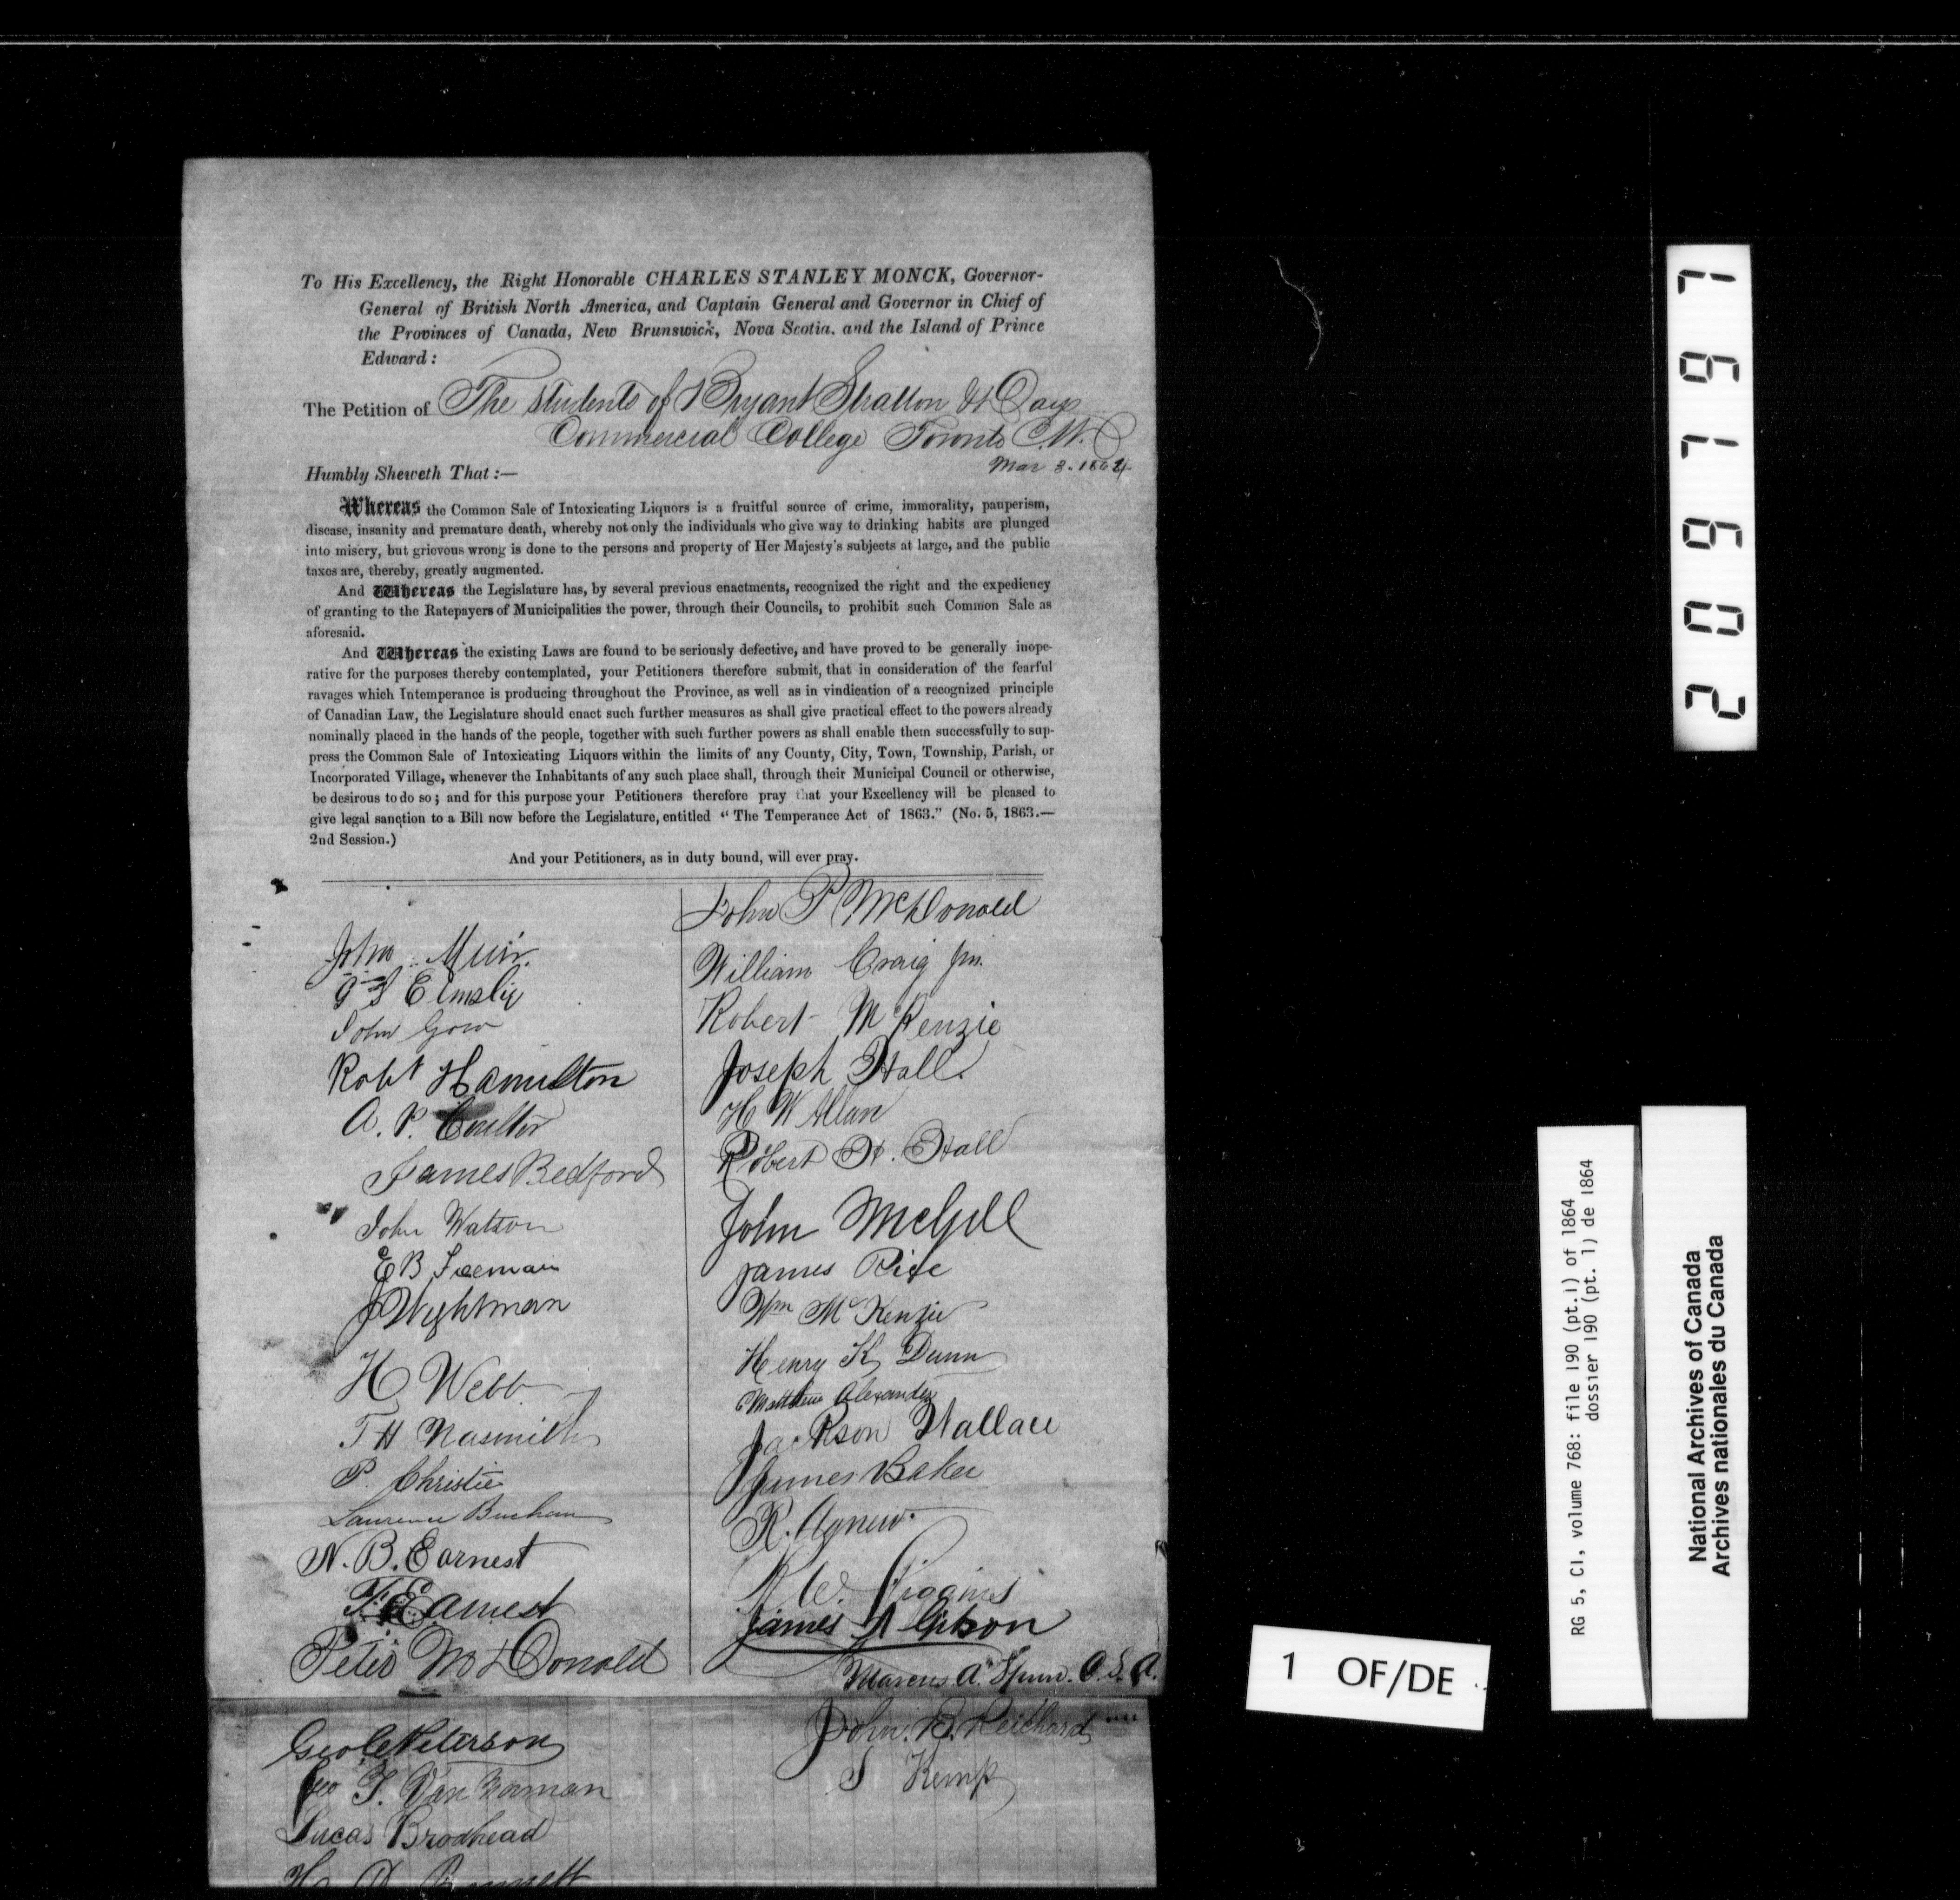 To His Excellency, the Right Honorable CHARLES STANLEY MONCK, Governor-
General of British North America, and Captain General and Governor in Chief of
the Provinces of Canada, New Brunswick, Nova Scotia, and the Island of Prince
Edward:
The Petition of The students of Bryant Stratton & Days
Commercial College Toronto C.W.
Mar 8. 1864
Humbly Sheweth That:—
Whereas the Common Sale of Intoxicating Liquors is a fruitful source of crime, immorality, pauperism,
disease, insanity and premature death, whereby not only the individuals who give way to drinking habits are plunged
into misery, but grievous wrong is done to the persons and property of Her Majesty's subjects at large, and the public
taxes are, thereby, greatly augmented.
And Whereas the Legislature has, by several previous enactments, recognized the right and the expediency
of granting to the Ratepayers of Municipalities the power, through their Councils, to prohibit such Common Sale as
aforesaid.
And Whereas the existing Laws are found to be seriously defective, and have proved to be generally inope-
rative for the purposes thereby contemplated, your Petitioners therefore submit, that in consideration of the fearful
ravages which Intemperance is producing throughout the Province, as well as in vindication of a recognized principle
of Canadian Law, the Legislature should enact such further measures as shall give practical effect to the powers already
nominally placed in the hands of the people, together with such further powers as shall enable them successfully to sup-
press the Common Sale of Intoxicating Liquors within the limits of any County, City, Town, Township, Parish, or
Incorporated Village, whenever the Inhabitants of any such place shall, through their Municipal Council or otherwise,
be desirous to do so; and for this purpose your Petitioners therefore pray that your Excellency will be pleased to
give legal sanction to a Bill now before the Legislature, entitled "The Temperance Act of 1863." (No. 5, 1863.—
2nd Session.)
And your Petitioners, as in duty bound, will ever pray.
John Muir.
Elmslie
John Gow
Robt Hamilton
A. P. Coulter
James Bedford
John Watson
E B Freeman
J Wightman
H Webb
T H Nasmith
P. Christie
Laurence Buchan
N. B. Earnest
T. Earnest
Peter McDonald
Geo C Peterson
Geo T. Van Norman
Lucas Brodhead
John P McDonald
William Craig Jnr.
Robert McKenzie
Joseph Hall.
H W Allan
Robert H. Hall
John McGill
James Rice
Wm McKenzie
Henry K Dunn
Matthew Alexander
Jackson Wallace
James Baker
R. Agnew.
R W. Higgins
James A Gibson
Marcus A. U.S.A.
John. B. Reichard
S Kemp
209197
RG 5, C1, volume 768: file 190 (pt.1) of 1864
dossier 190 (pt. 1) de 1864
National Archives of Canada
Archives nationales du Canada
1 OF/DE